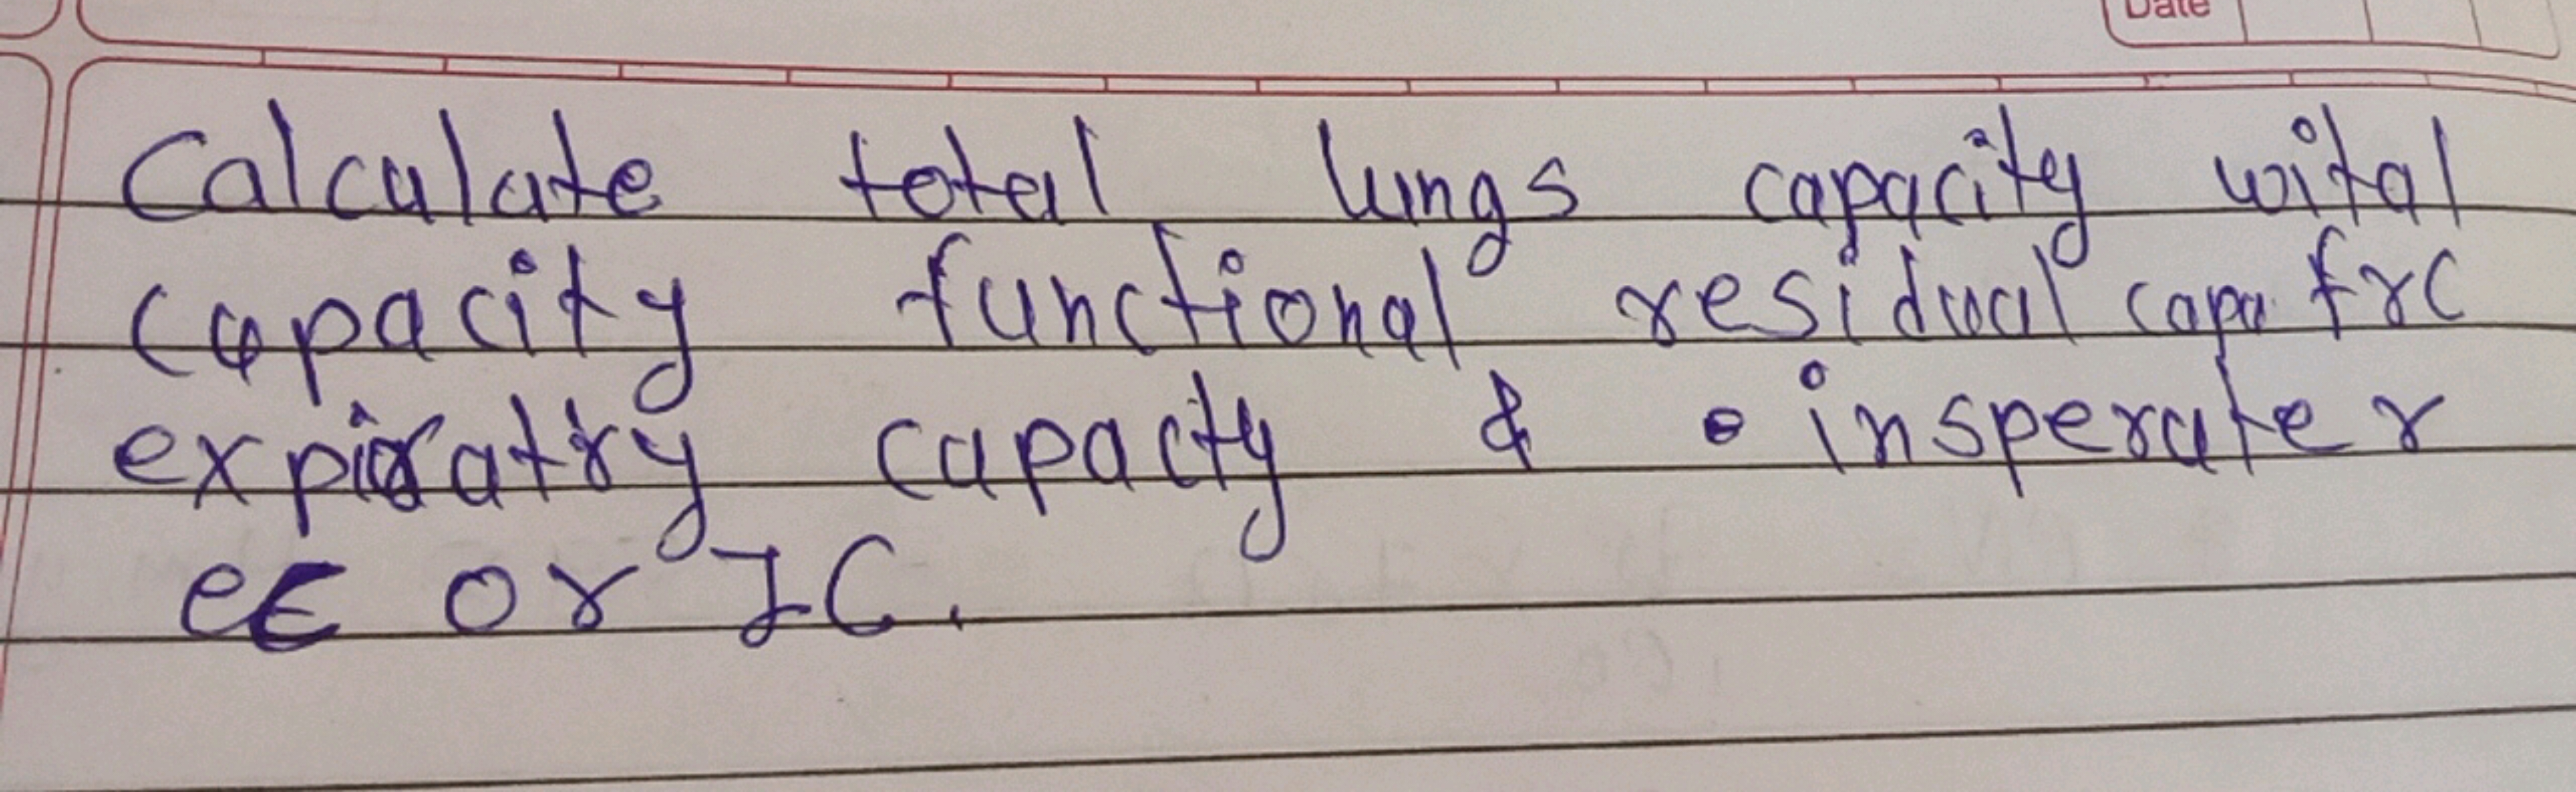 Date
Calculate total lungs capacity wital
capacity functional residual capa frc
expiratry capacty & insperater
ec or IC.